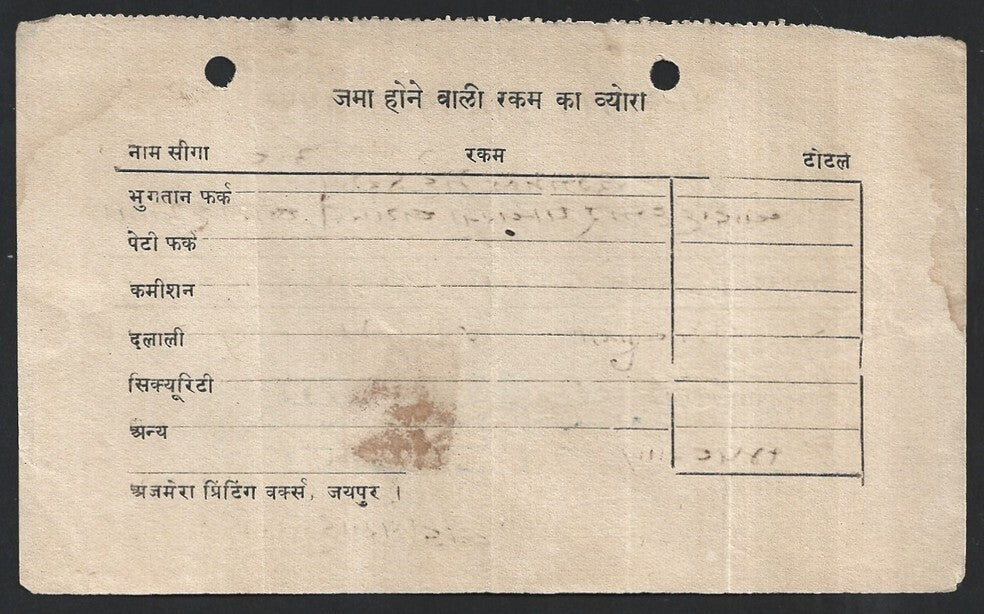 जमा होने वाली रकम का ब्योरा
नाम सीगा रकम टोटल
भुगतान फर्क
पेटी फर्क
कमीशन
दलाली
सिक्यूरिटी
अन्य
अजमेरा प्रिंटिंग वर्क्स, जयपुर ।